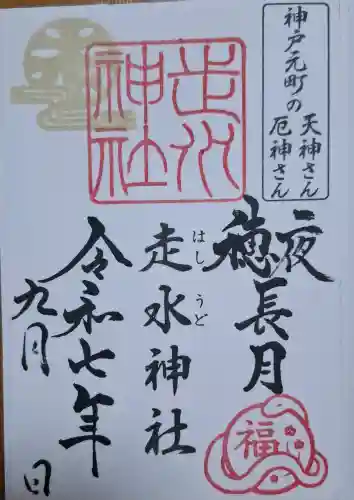 神戸元町の
天神さん
厄神さん
夜長月
穂
走水神社
はしうど
走水神社
令和七年
九月
日
福